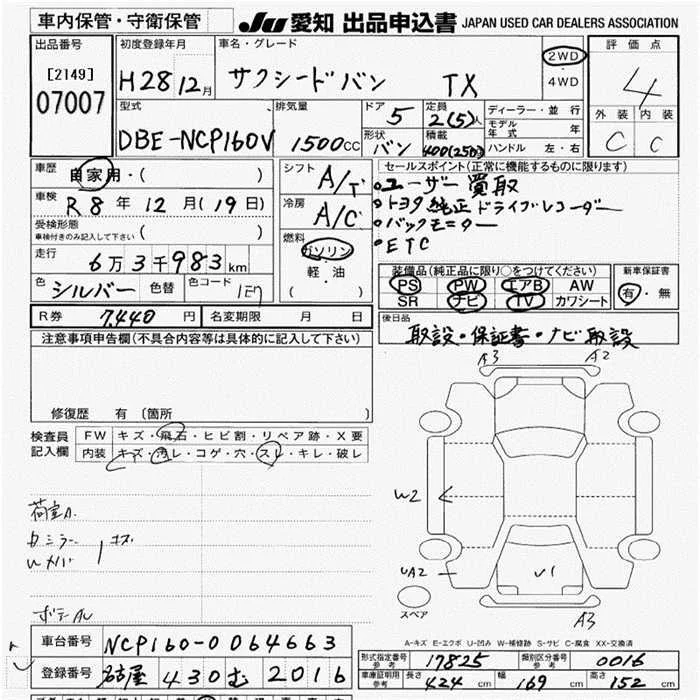 車内保管・守衛保管
JU 愛知 出品申込書 JAPAN USED CAR DEALERS ASSOCIATION
出品番号
[2149]
07007
初度登録年月
H28 12月
車名・グレード
サクシードバン TX
2WD
4WD
評価点
4
外装 内装
C C
型式
DBE-NCP160V
排気量
1500cc
ドア 5
形状 バン
定員 2(5)人
積載 400(250)
ディーラー・並行
モデル年式 年
ハンドル 左・右
車歴
自家用・( )
車検
R8年12月(19日)
受検形態
車検付きのみ記入して下さい ( )
走行
6万3千983km
色 シルバー 色替 色コード 1E7
シフト A/T
冷房 A/C
燃料
ガソリン
軽・油
( )
セールスポイント(正常に機能するものに限ります)
・ユーザー買取
・トヨタ純正ドライブレコーダー
・バックモニター
・ETC
装備品(純正品に限り○をつけてください)
PS PW エアB AW
SR ナビ TV カワシート
新車保証書
有・無
R券 7,440円 名変期限 月 日
後日品
取説・保証書・ナビ取説
注意事項申告欄(不具合内容等は具体的に記入して下さい)
修復歴 有 〔箇所 〕
検査員記入欄
FW キズ・飛石・ヒビ割・リペア跡・X要
内装 キズ・汚レ・コゲ・穴・スレ・キレ・破レ
A3 A2
W2
UA2 U1
A3
スペア
A-キズ E-エクボ U-凹み W-補修跡 S-サビ C-腐食 XX-交換済
車台番号 NCP160-0064663
登録番号 名古屋 430 む 2016
形式指定番号 参考 17825 類別区分番号 参考 0016
車庫証明用 参考 長さ 424cm 幅 169cm 高さ 152cm